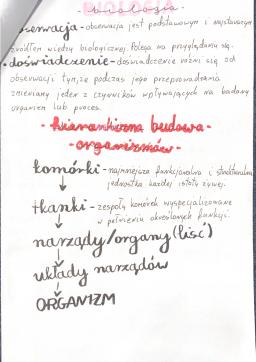 - biologia -
obserwacja - obserwacja jest podstawowym i najstarszym
źródłem wiedzy biologicznej. Polega na przyglądaniu się.
• doświadczenie - doświadczenie różni się od
obserwacji tym, że podczas jego przeprowadzania
zmieniamy jeden z czynników wpływających na badany
organizm lub proces.
- hierarchiczna budowa -
- organizmów -
komórki - najmniejsza funkcjonalna i strukturalna
jednostka każdej istoty żywej.
↓
tkanki - zespoły komórek wyspecjalizowane
w pełnieniu określonych funkcji.
↓
narządy/organy (liść)
↓
układy narządów
↓
ORGANIZM